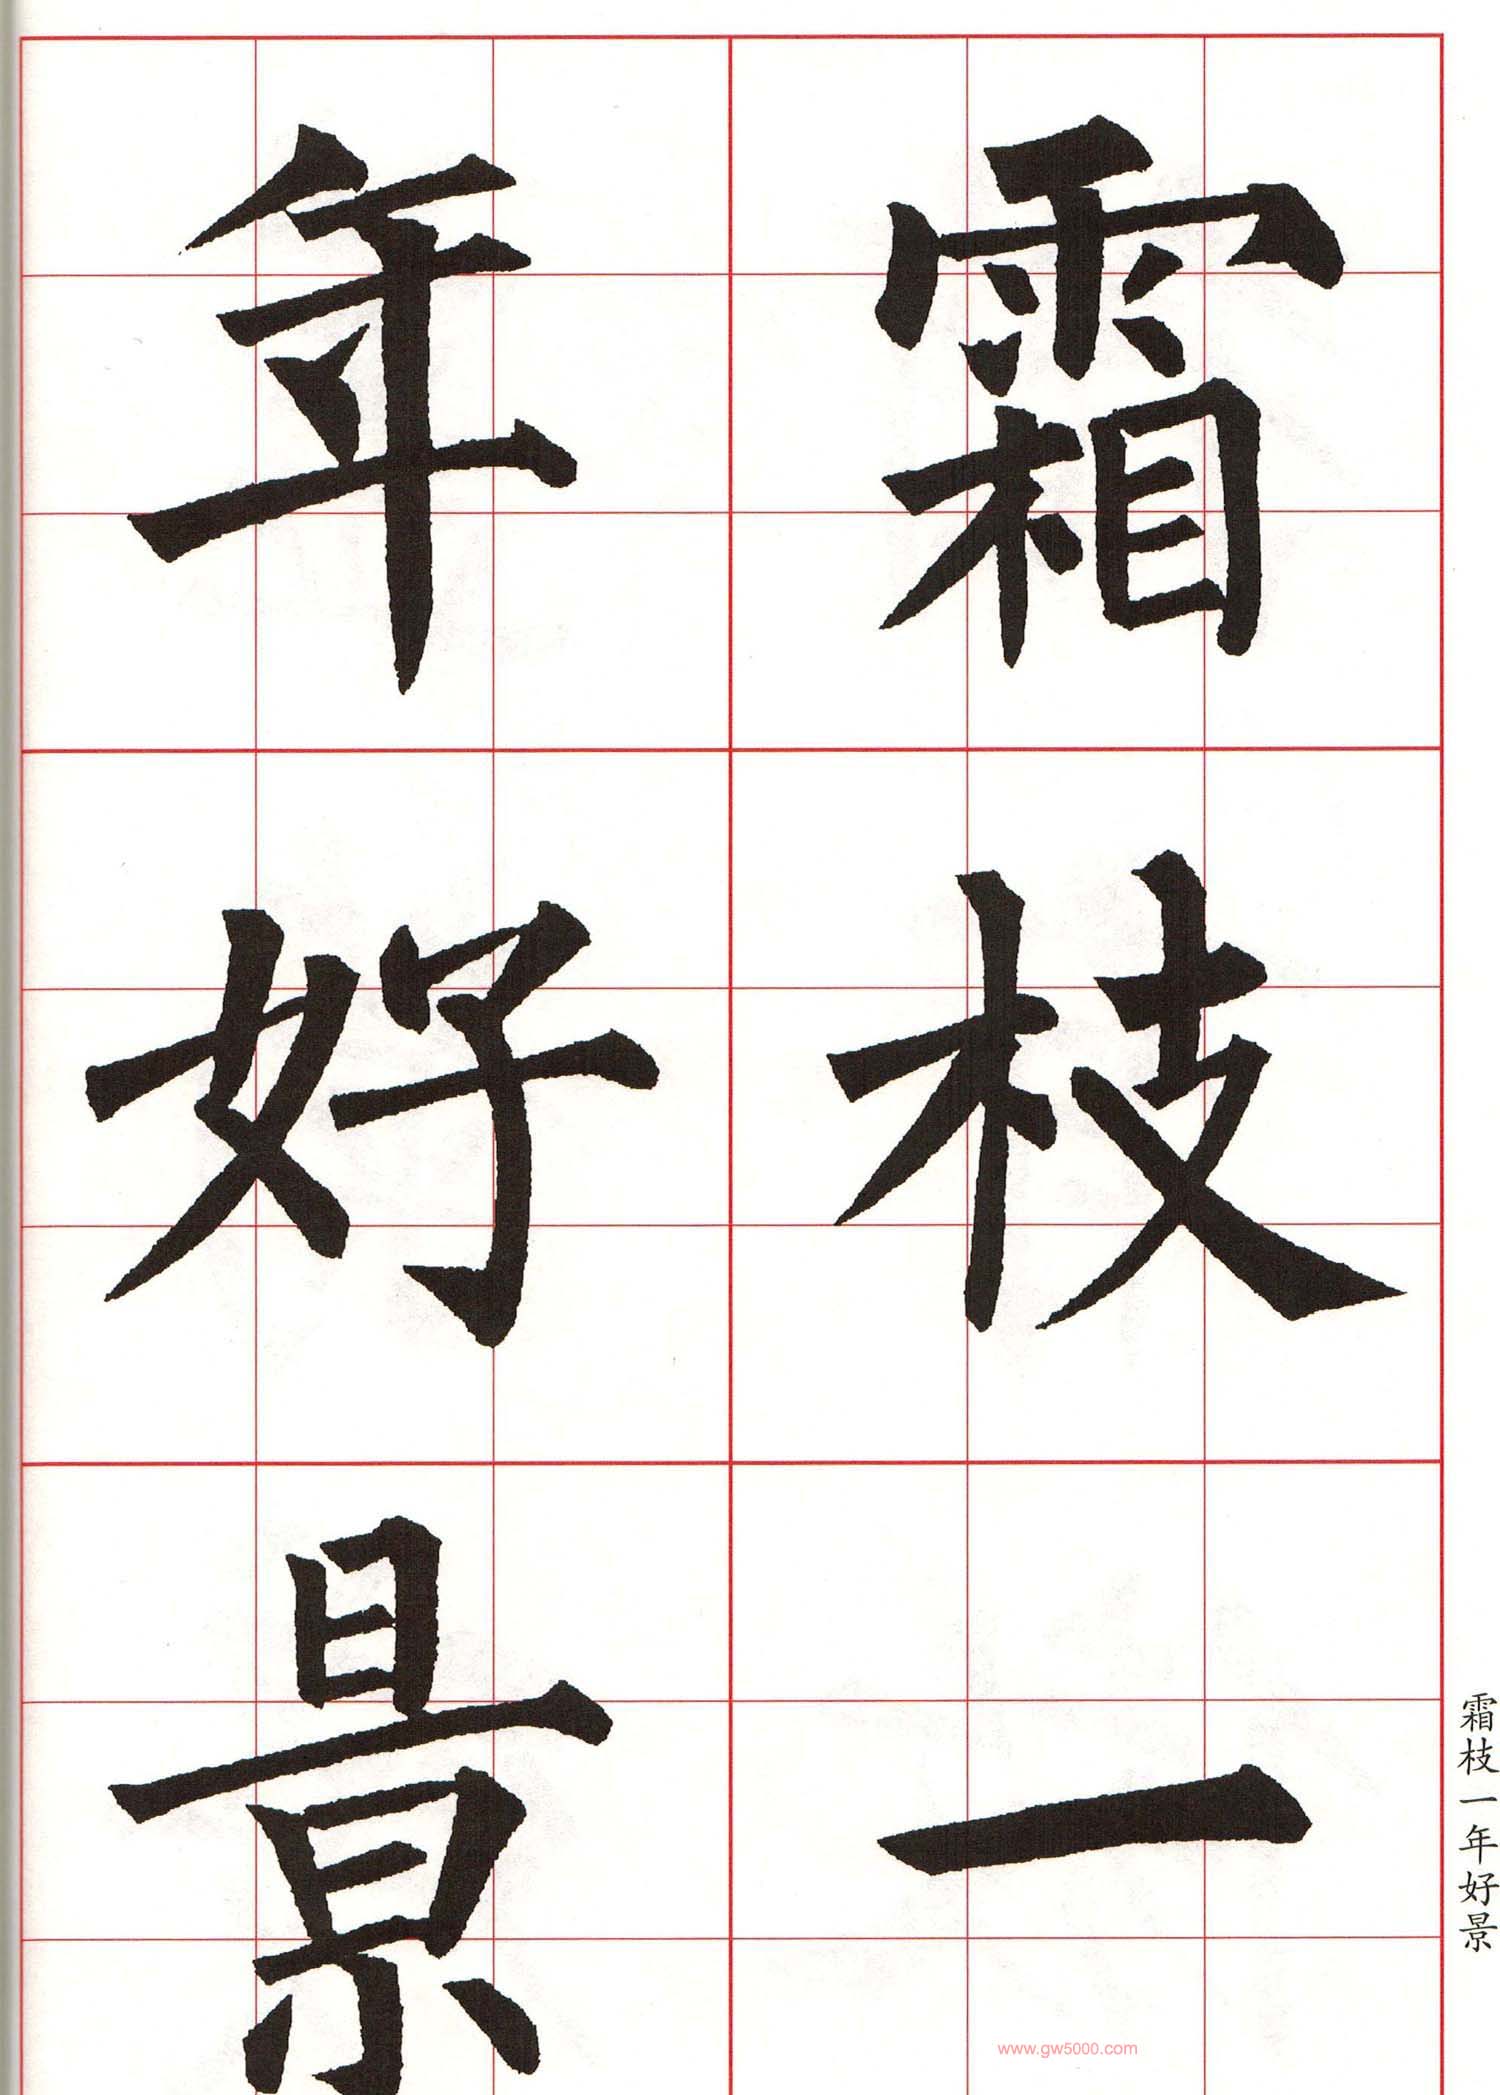 霜枝一
年好景
霜枝一年好景
www.gw5000.com